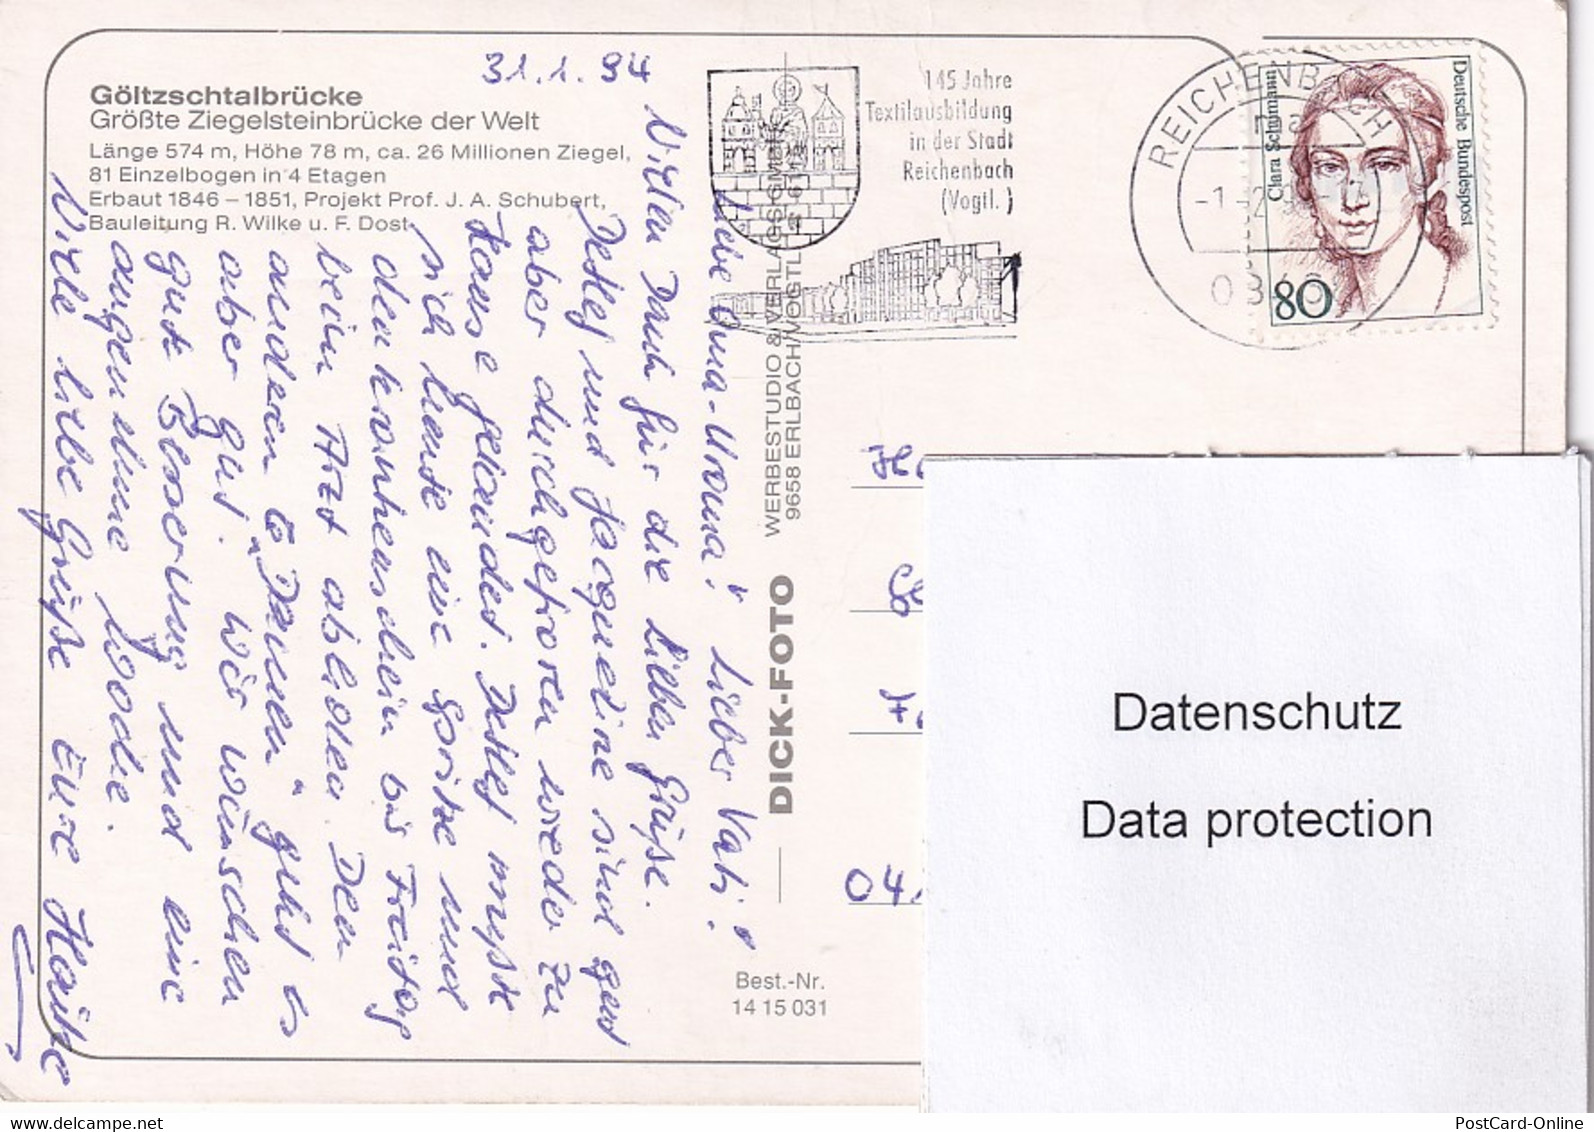 Göltzschtalbrücke
Größte Ziegelsteinbrücke der Welt
Länge 574 m, Höhe 78 m, ca. 26 Millionen Ziegel,
81 Einzelbogen in 4 Etagen
Erbaut 1846 – 1851, Projekt Prof. J. A. Schubert,
Bauleitung R. Wilke u. F. Dost
31.1.94
Liebe Oma-Uroma! Lieber Vati!
Vielen Dank für die lieben Grüße.
Detlef und Jacqueline sind gut
aber durchgefroren wieder zu
Hause gelandet. Detlef mußte
sich heute eine Spritze und
den Krankenschein bis Freitag
beim Arzt abholen. Den
anderen 6 „Damen“ geht es
aber gut. Wir wünschen
gute Besserung und eine
angenehme Woche.
Viele liebe Grüße Eure Heike
145 Jahre
Textilausbildung
in der Stadt
Reichenbach
(Vogtl.)
REICHENBACH
-1.-2
Clara Schumann
Deutsche Bundespost
80
WERBESTUDIO & VERLAGS GMBH
9658 ERLBACH/VOGTL.
DICK-FOTO
Best.-Nr.
14 15 031
04
Datenschutz
Data protection
www.delcampe.net
PostCard-Online